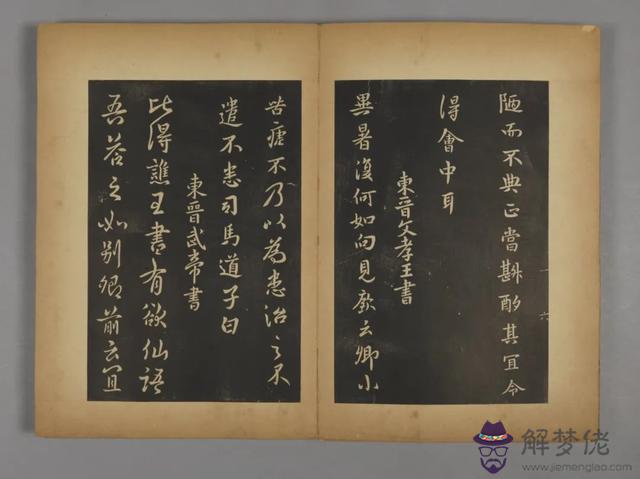 陋而不典正當斟酌其宜令
得會中耳
東晉文孝王書
異暑復何如向見厥云卿小
苦瘧不乃以為患治之不
遣不悉司馬道子白
東晉武帝書
比得譙王書有欲仙語
吾答之如別卿前云宜
解梦佬
www.jiemenglao.com